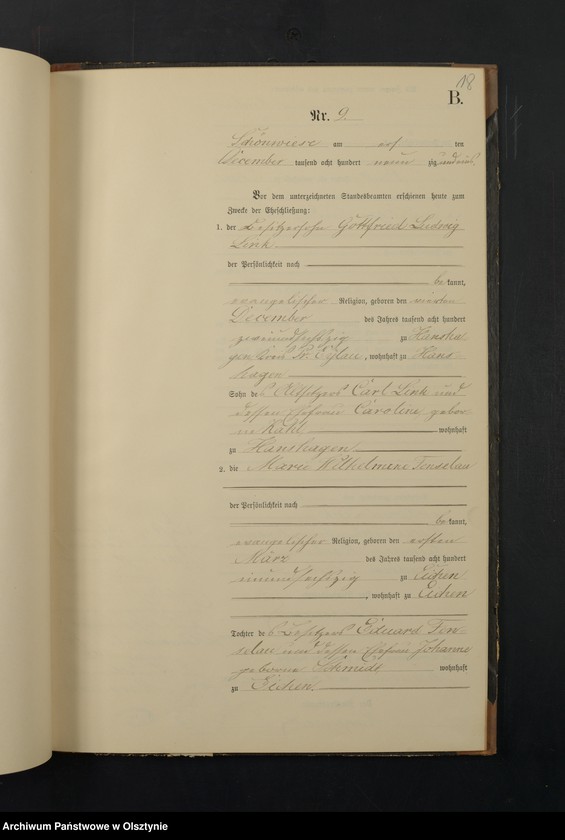 18
B.
Nr. 9.
Schönwiese am ten
December tausend acht hundert neun zig
Vor dem unterzeichneten Standesbeamten erschienen heute zum
Zwecke der Eheschließung:
1. der Besitzersohn Gottfried Ludwig
Link
der Persönlichkeit nach
be kannt,
evangelischer Religion, geboren den vierten
December des Jahres tausend acht hundert
zweiundsechszig zu Hansha
gen Kreis Pr. Eylau, wohnhaft zu Hans
hagen
Sohn des Altsitzers Carl Link und
dessen Ehefrau Caroline gebor
ne wohnhaft
zu Hanshagen
2. die Marie Wilhelmine Tenselau
der Persönlichkeit nach
be kannt,
evangelischer Religion, geboren den ersten
März des Jahres tausend acht hundert
neunundsechszig zu Eichen
, wohnhaft zu Eichen
Tochter des Besitzers Eduard Ten-
selau und dessen Ehefrau Johanne
geborene Schmidt wohnhaft
zu Eichen.
Archiwum Państwowe w Olsztynie